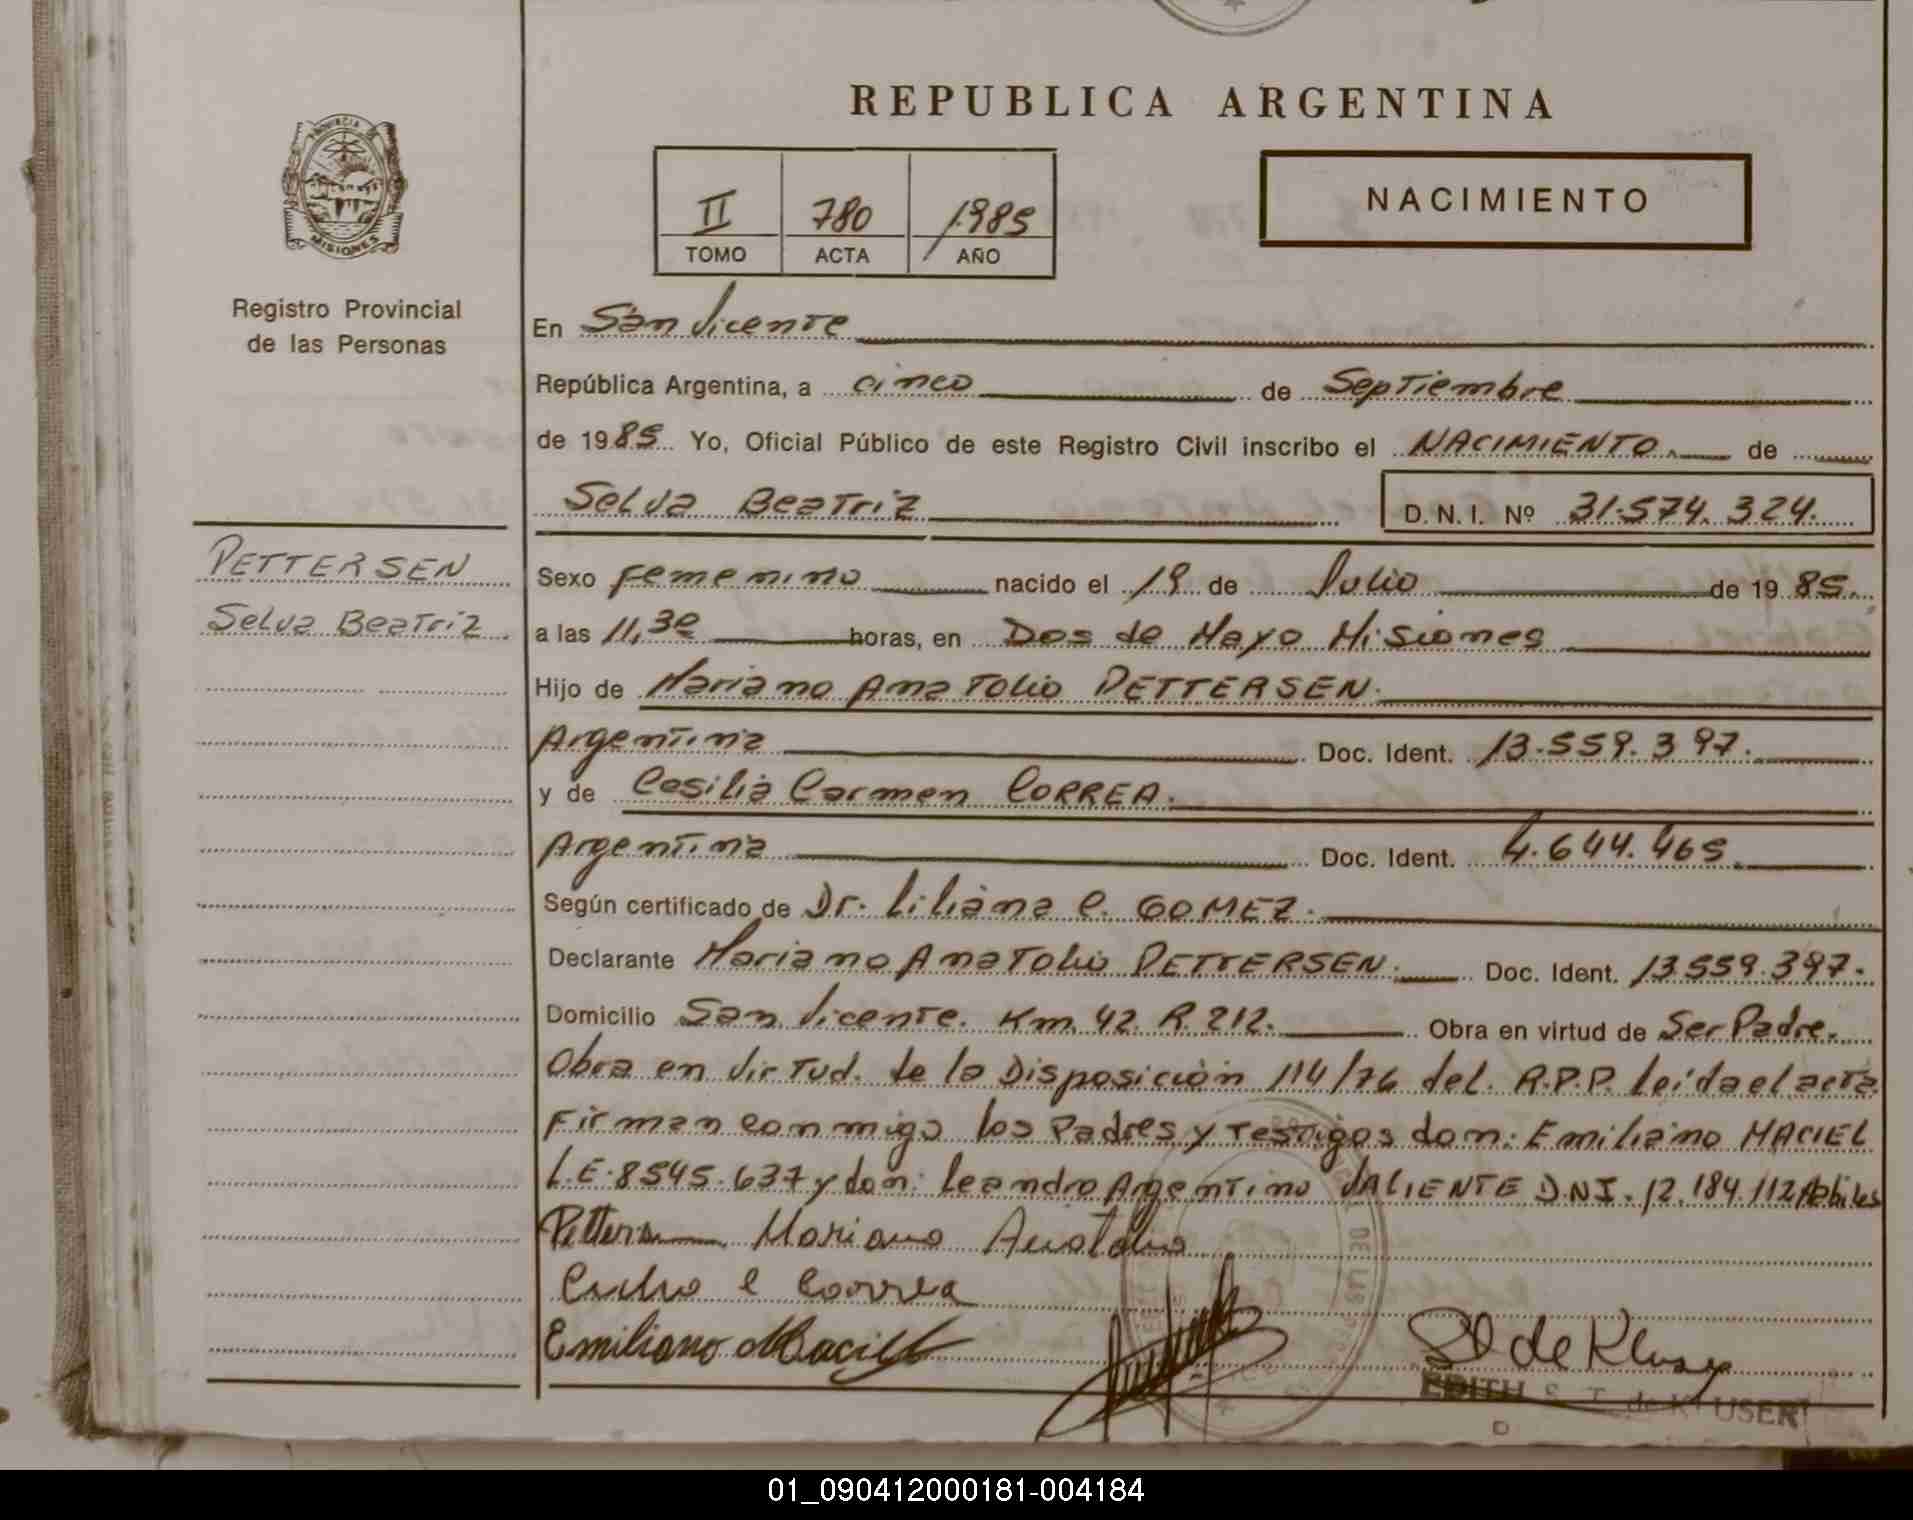 REPUBLICA ARGENTINA
PROVINCIA DE
MISIONES
II 780 1985
TOMO ACTA AÑO
NACIMIENTO
Registro Provincial
de las Personas
PETTERSEN
Selva Beatriz
En San Vicente
República Argentina, a cinco de Septiembre
de 1985 Yo, Oficial Público de este Registro Civil inscribo el NACIMIENTO. de
Selva Beatriz D. N. I. Nº 31.574.324.
Sexo femenino nacido el 19 de Julio de 1985.
a las 11,30 horas, en Dos de Mayo Misiones
Hijo de Mariano Anatolio PETTERSEN.
Argentina Doc. Ident. 13.559.397.
y de Cesilia Carmen CORREA.
Argentina Doc. Ident. 4.644.465.
Según certificado de Dr. Liliana C. GOMEZ.
Declarante Mariano Anatolio PETTERSEN. Doc. Ident. 13.559.397.
Domicilio San Vicente. Km. 42. R. 212. Obra en virtud de Ser Padre.
Obra en virtud. de la Disposición 114/76 del. R.P.P. leída el acta
Firman conmigo los Padres y Testigos don: Emiliano MACIEL
L.E. 8545.637 y don: Leandro Argentino VALIENTE D.N.I. 12.184.112 Habiles
Mariano Anatolio
C Correa
Emiliano Maciel
de Kluser
EDITH S. T. de KLUSER
01_090412000181-004184